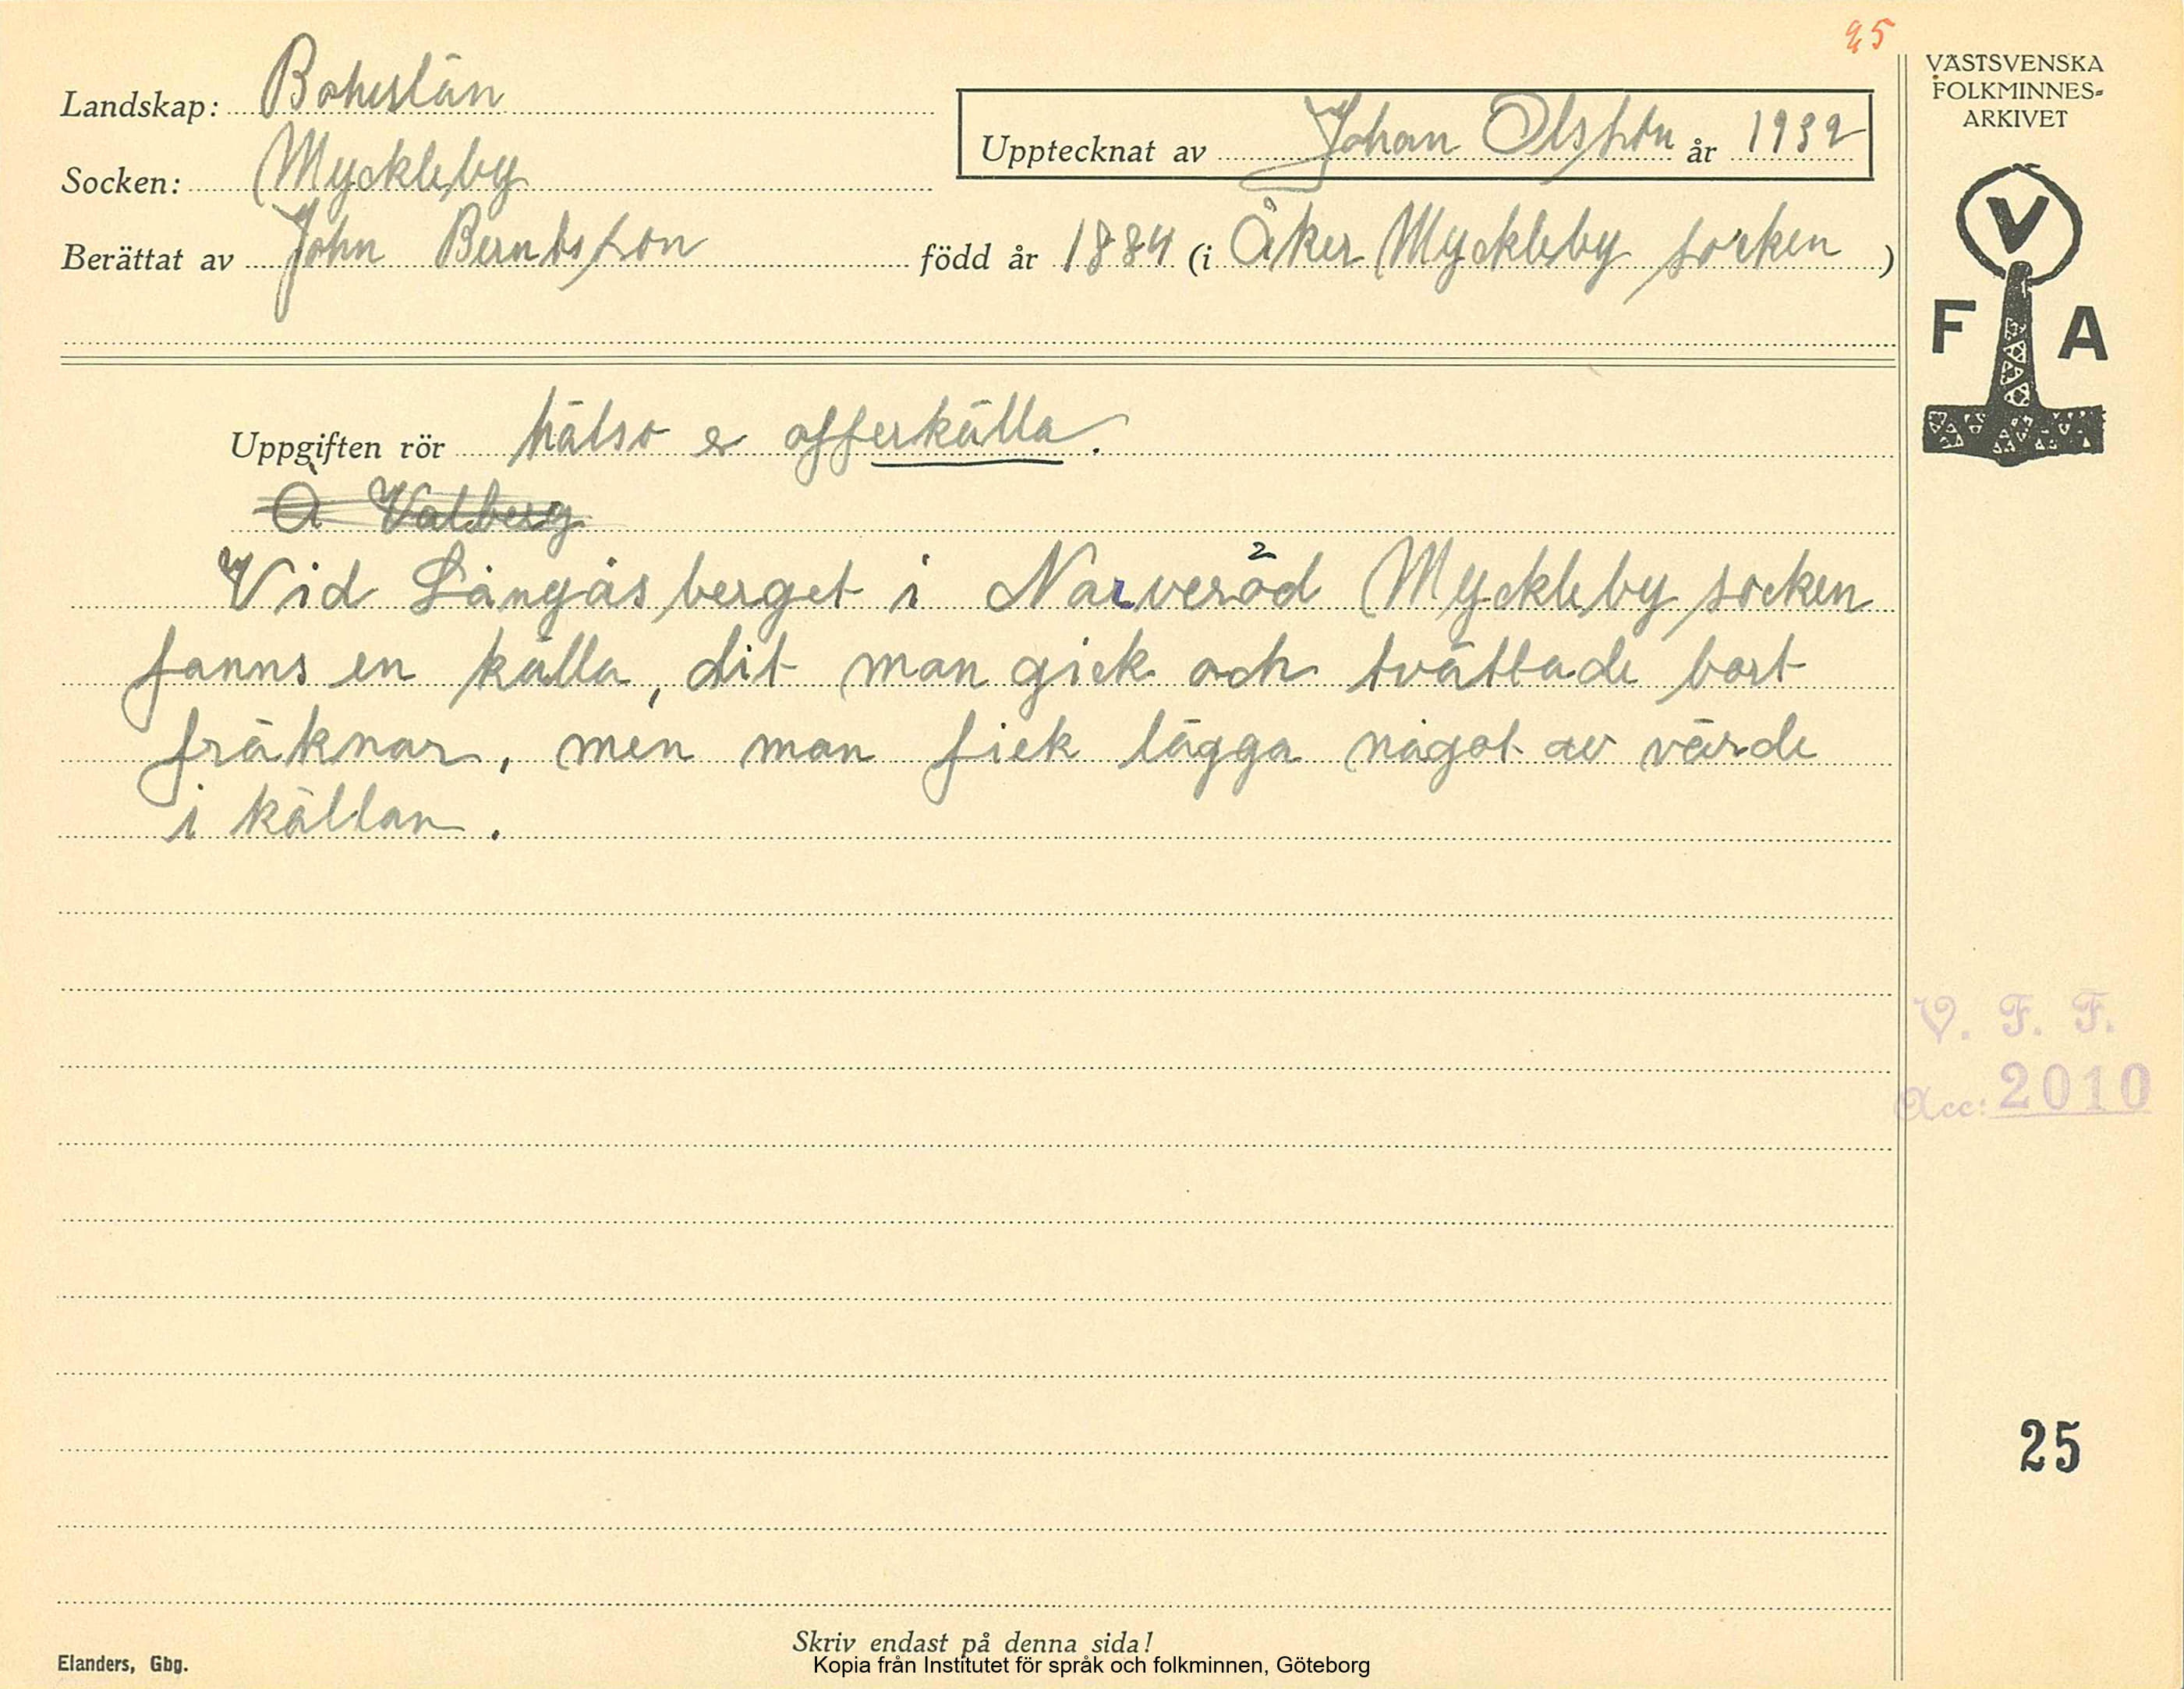 25
VÄSTSVENSKA
FOLKMINNES-
ARKIVET
Landskap: Bohuslän
Upptecknat av Johan Olsson år 1932
Socken: Myckleby
Berättat av John Berntsson född år 1884 (i Åker Myckleby socken)
V
F A
Uppgiften rör hälso & offerkälla.
Å Valberg
Vid Långåsberget i Narveröd Myckleby socken
2
fanns en källa, dit man gick och tvättade bort
fräknar, men man fick lägga något av värde
i källan.
V. F. F.
Acc: 2010
25
Skriv endast på denna sida!
Elanders, Gbg.
Kopia från Institutet för språk och folkminnen, Göteborg